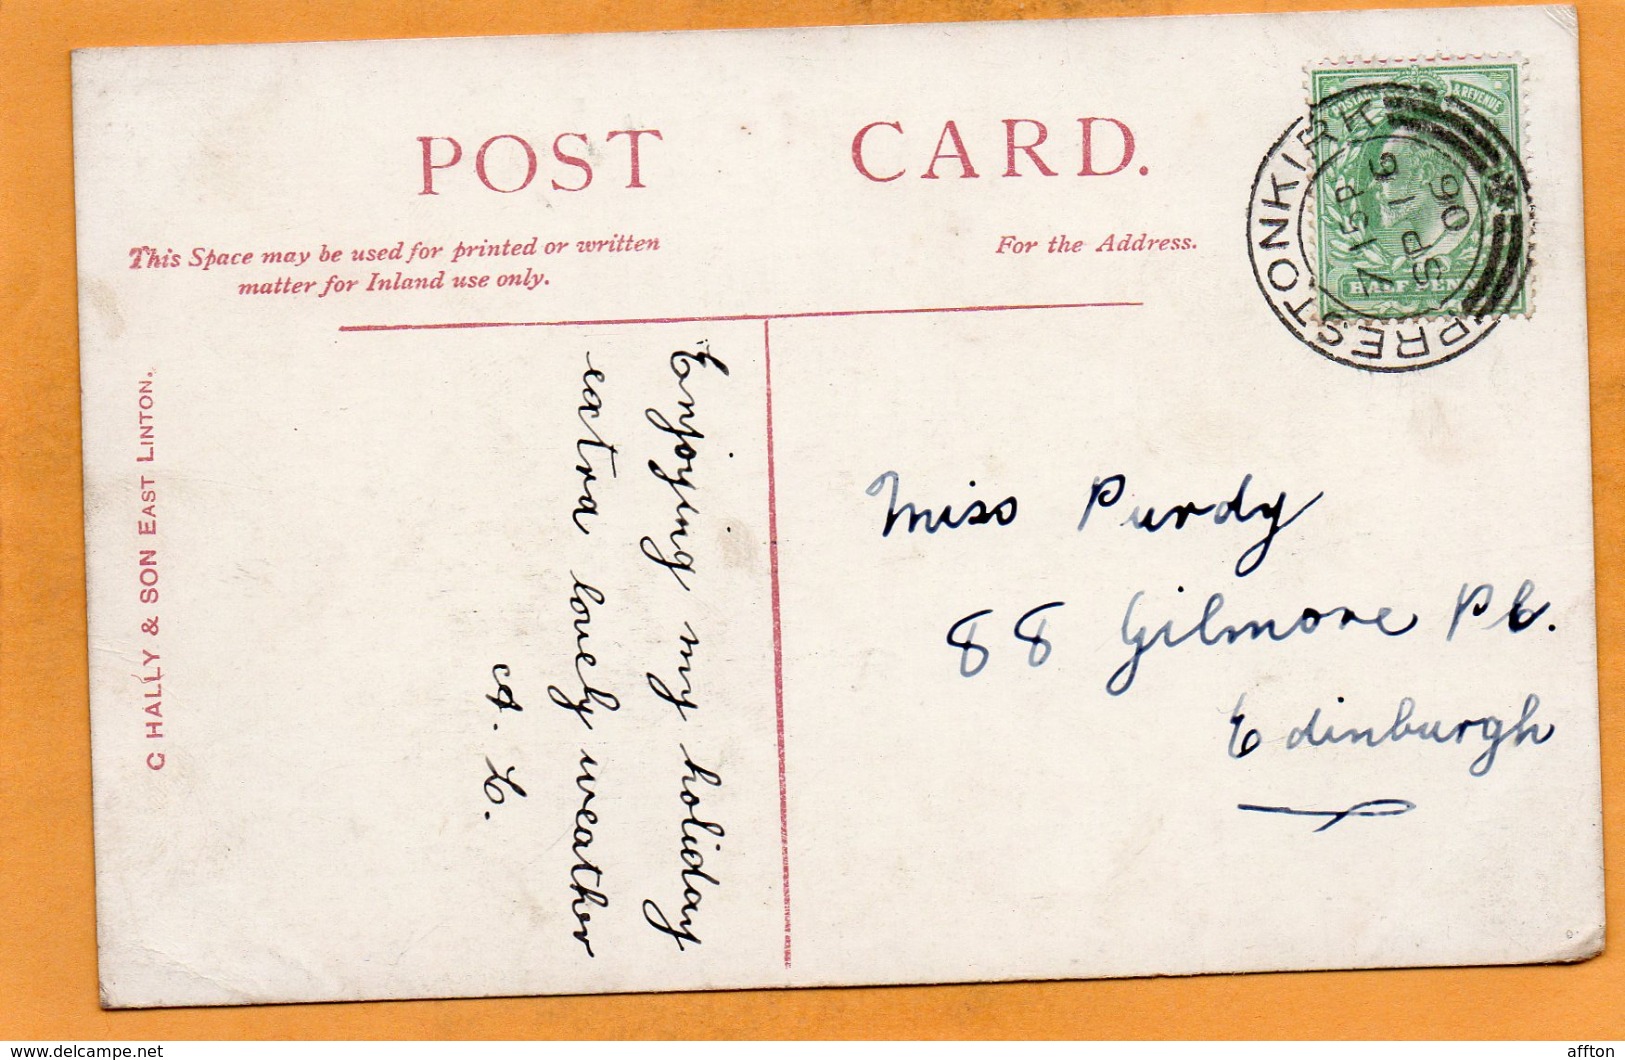 POST CARD.
This Space may be used for printed or written
matter for Inland use only.
For the Address.
C HALLY & SON EAST LINTON.
Enjoying my holiday
extra lovely weather
A. L.
POSTAGE & REVENUE
HALF PENNY
PRESTONKIRK
7 15 P
SP 19
06
Miss Purdy
88 Gilmore Pl.
Edinburgh
delcampe.net
affton